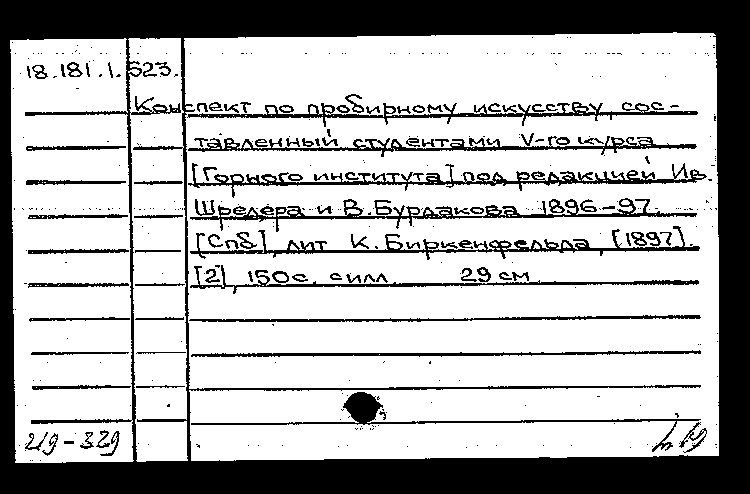 18.181.1.523.
Конспект по пробирному искусству, сос-
тавленный студентами V-го курса
[Горного института] под редакцией Ив.
Шредера и В.Бурдакова 1896-97.
[Спб], лит К. Биркенфельда, [1897].
[2], 150с. силл. 29 см.
219-329